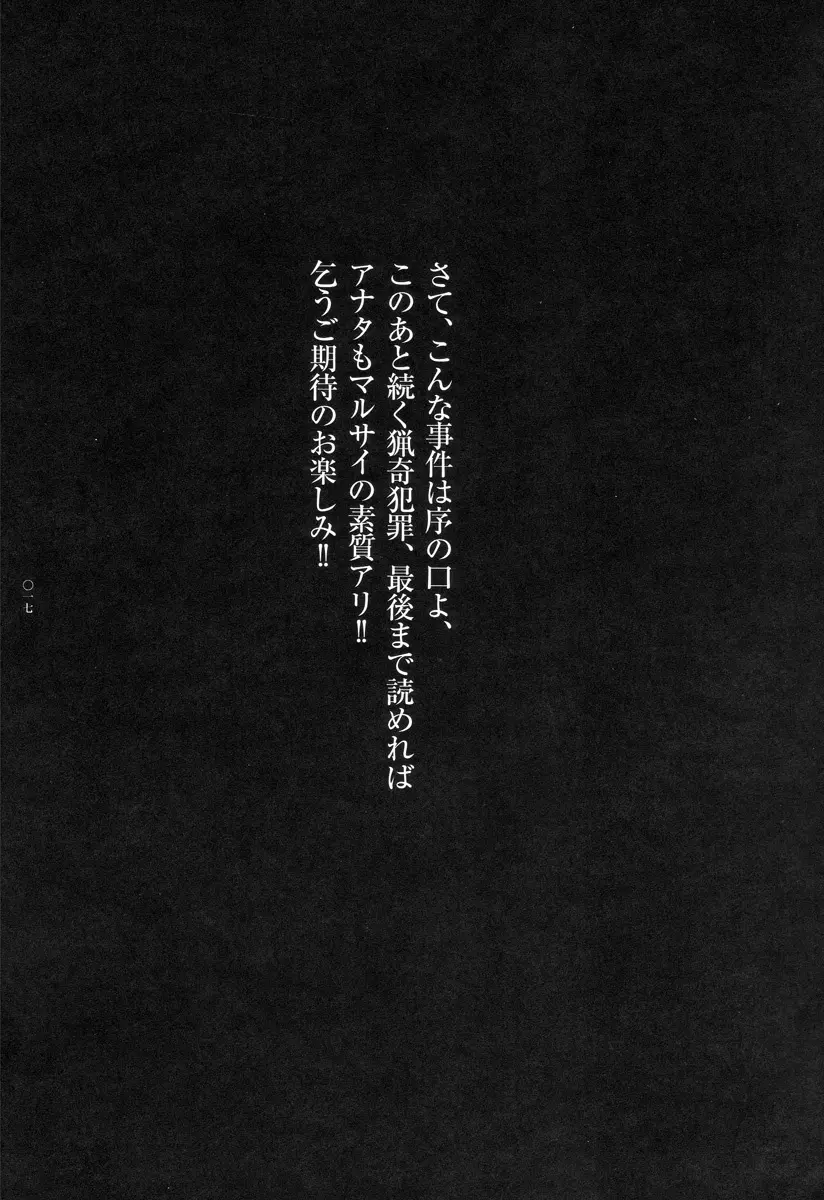 さて、こんな事件は序の口よ、
このあと続く猟奇犯罪、最後まで読めれば
アナタもマルサイの素質アリ!!
乞うご期待のお楽しみ!!
〇一七